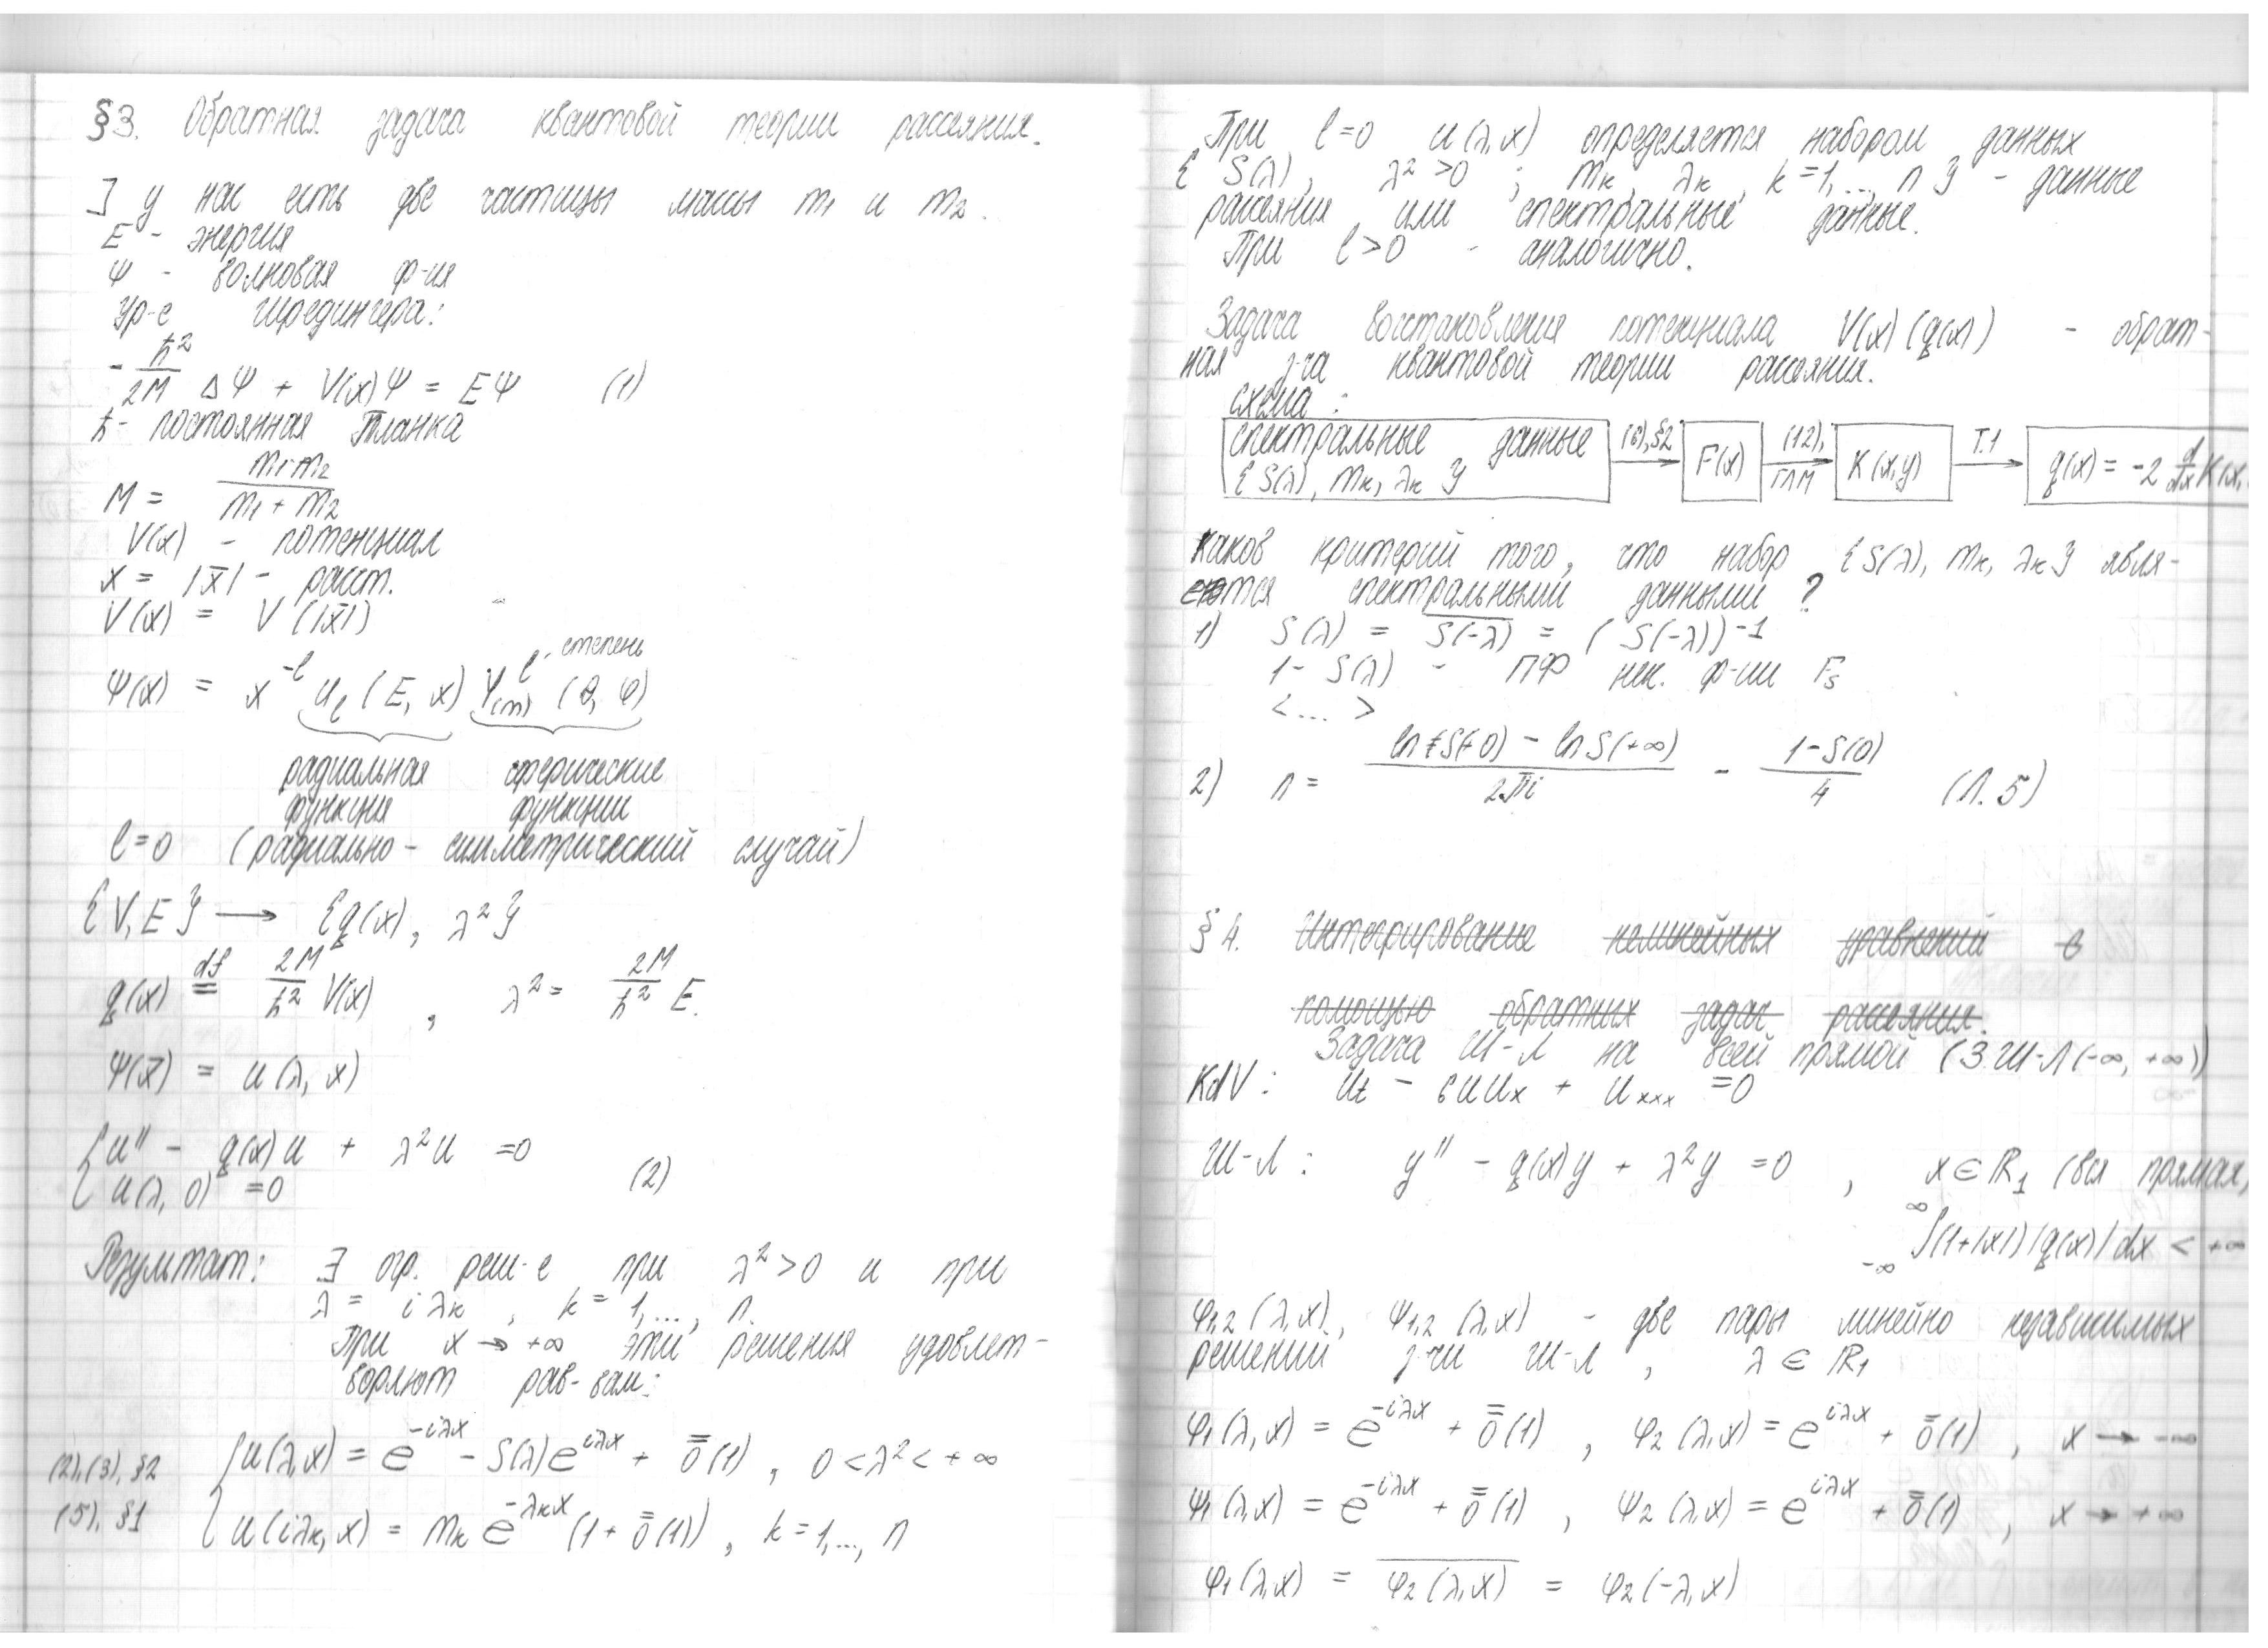 §3. Обратная задача квантовой теории рассеяния.
] у нас есть две частицы массы m₁ и m₂.
E - энергия
Ψ - волновая ф-ия
Ур-е Шредингера:
-ħ²/2M ΔΨ + V(x)Ψ = EΨ (1)
ħ - постоянная Планка
M = m₁·m₂/(m₁ + m₂)
V(x) - потенциал
x = |x̄| - расст.
V(x) = V(|x̄|)
l - степень
Ψ(x) = x^{-l} u_l (E, x) Y^l_{(m)} (θ, φ)
радиальная функция
сферические функции
l=0 (радиально-симметрический случай)
{V, E} → {q(x), λ²}
q(x) df= 2M/ħ² V(x), λ² = 2M/ħ² E.
Ψ(x̄) = u(λ, x)
{ u'' - q(x)u + λ²u = 0
u(λ, 0) = 0 (2)
Результат: ∃ огр. реш-е при λ²>0 и при
λ = iλₖ, k = 1,..., n.
При x → +∞ эти решения удовлет-
воряют рав-вам:
(2),(3), §2
(5), §1
{ u(λ,x) = e^{-iλx} - S(λ)e^{iλx} + ō̄(1), 0 < λ² < +∞
u(iλₖ, x) = mₖ e^{-λₖx} (1 + ō̄(1)), k = 1,..., n
При l=0 u(λ,x) определяется набором данных
{ S(λ), λ²>0; mₖ, λₖ, k=1,..., n } - данные
рассеяния или спектральные данные.
При l>0 - аналогично.
Задача восстановления потенциала V(x) (q(x)) - обрат-
ная з-ча квантовой теории рассеяния.
схема:
спектральные данные {S(λ), mₖ, λₖ} (6),§2 → F(x) (12), ГЛМ → K(x,y) Т.1 → q(x) = -2 d/dx K(x,
Каков критерий того, что набор {S(λ), mₖ, λₖ} явля-
ется спектральными данными?
1) S(λ) = \overline{S(-λ)} = (S(-λ))^{-1}
1 - S(λ) - ПФ нек. ф-ии F_s
<...>
2) n = (ln S(+0) - ln S(+∞))/2πi - (1-S(0))/4 (Л.5)
§4. Интегрирование нелинейных уравнений с
помощью обратных задач рассеяния.
Задача Ш-Л на всей прямой (З.Ш-Л(-∞, +∞))
KdV: u_t - 6uu_x + u_xxx = 0
Ш-Л: y'' - q(x)y + λ²y = 0, x ∈ ℝ₁ (вся прямая,
∫_{-∞}^{∞} (1+|x|)|q(x)|dx < +∞
φ₁,₂(λ,x), ψ₁,₂(λ,x) - две пары линейно независимых
решений з-чи Ш-Л, λ ∈ ℝ₁
φ₁(λ,x) = e^{-iλx} + ō̄(1), φ₂(λ,x) = e^{iλx} + ō̄(1), x → -∞
ψ₁(λ,x) = e^{-iλx} + ō̄(1), ψ₂(λ,x) = e^{iλx} + ō̄(1), x → +∞
φ₁(λ,x) = \overline{φ₂(λ,x)} = φ₂(-λ,x)